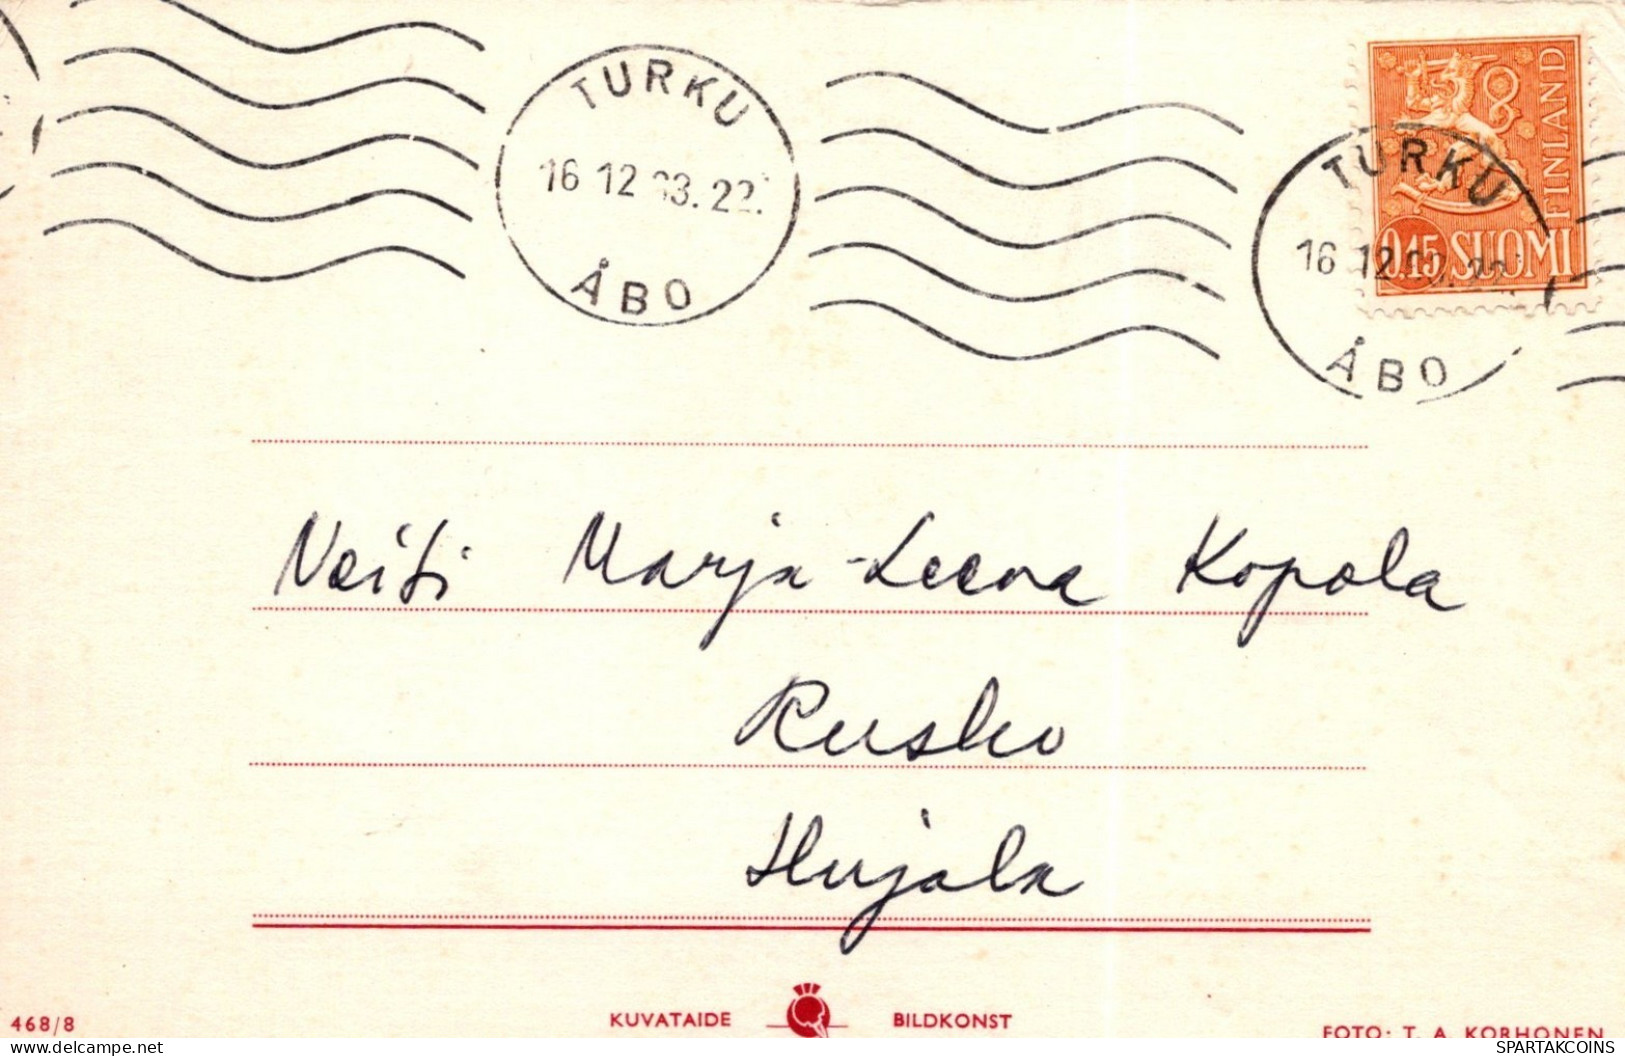 TURKU
16 12 63.22.
ÅBO
FINLAND
0.15 SUOMI
TURKU
16 12
ÅBO
Neiti Marja-Leena Kopola
Rusko
Hujala
468/8
KUVATAIDE BILDKONST
FOTO: T. A. KORHONEN
delcampe.net
SPARTAKCOINS